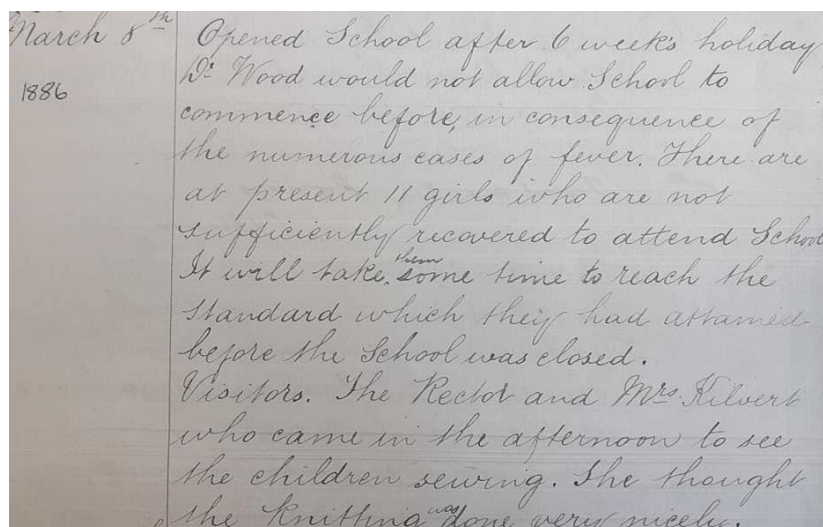 March 8th Opened School after 6 week's holiday
Dr. Wood would not allow School to
1886
commence before, in consequence of
the numerous cases of fever. There are
at present 11 girls who are not
sufficiently recovered to attend School
It will take them some time to reach the
standard which they had attained
before the School was closed.
Visitors. The Rector and Mrs. Kilvert
who came in the afternoon to see
the children sewing. She thought
the knitting was done very nicely.